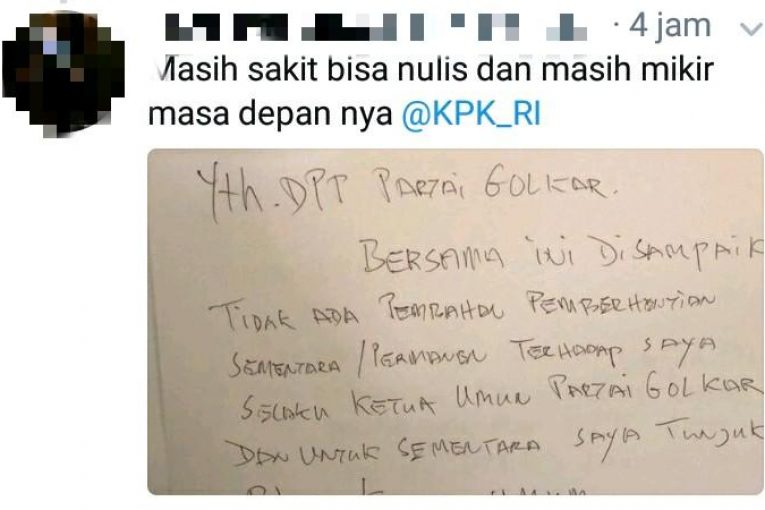 · 4 jam
Masih sakit bisa nulis dan masih mikir
masa depan nya @KPK_RI
Yth. DPP PARTAI GOLKAR.
BERSAMA INI DISAMPAIK
TIDAK ADA PEMBAHASN PEMBERHENTIAN
SEMENTARA / PERMANEN TERHADAP SAYA
SELAKU KETUA UMUM PARTAI GOLKAR
DAN UNTUK SEMENTARA SAYA TUNJUK
UMUM